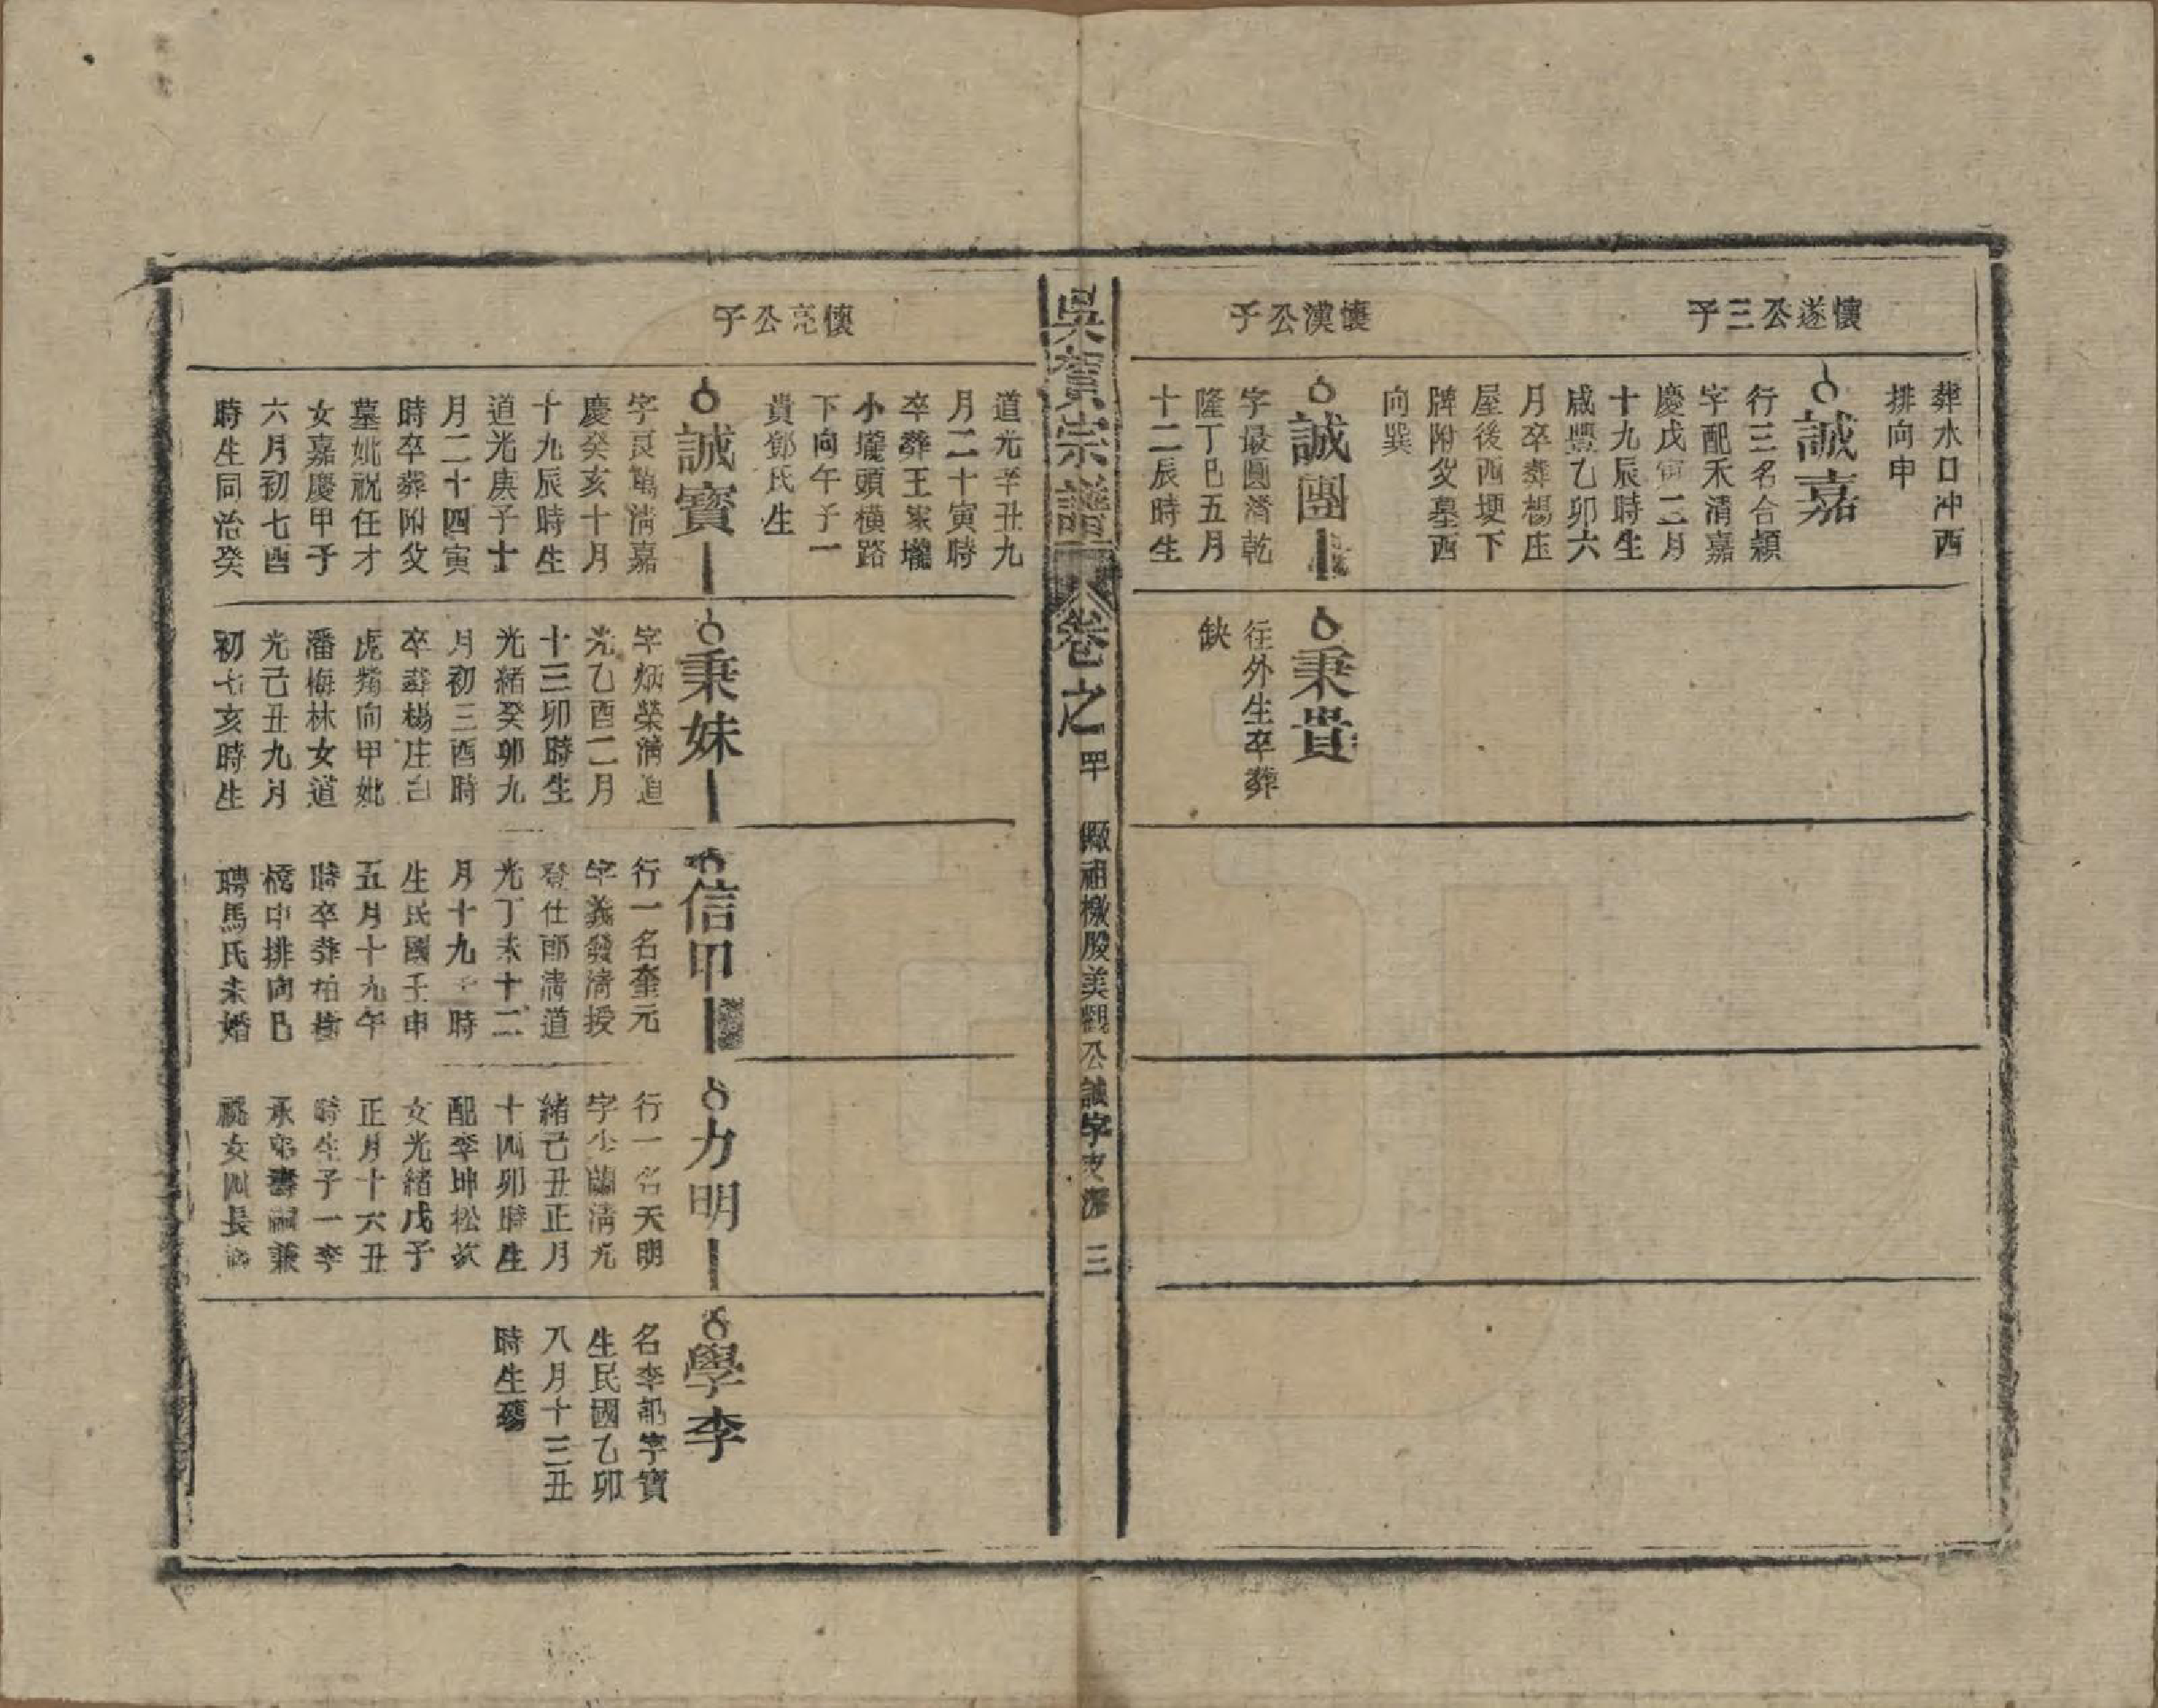 懷遂公三子
葬水口冲西
排向申
誠嘉
行三名合穎
字配禾清嘉
慶戊寅二月
十九辰時生
咸豐乙卯六
月卒葬楊庄
屋後西埂下
牌附父墓西
向巽
懷漢公子
誠團
字最圓清乾
隆丁巳五月
十二辰時生
秉貴
往外生卒葬
缺
吳貧宗譜
卷之
罕
公誠字支
三
懷亮公子
道光辛丑九
月二十寅時
卒葬王家壠
小壠頭橫路
下向午子一
貴鄧氏生
誠寶
字良 清嘉
慶癸亥十月
十九辰時生
道光庚子十
月二十四寅
時卒葬附父
墓妣祝任才
女嘉慶甲子
六月初七酉
時生同治癸
秉妹
字炳榮清道
光乙酉二月
十三卯時生
光緒癸卯九
月初三酉時
卒葬楊庄白
虎 向甲妣
潘梅林女道
光己丑九月
初七亥時生
信甲
行一名奎元
字義發清授
登仕郎清道
光丁未十二
月十九 時
生民國壬申
五月十九午
時卒葬柏樹
橋中排向巳
聘馬氏未婚
力明
行一名天明
字少蘭清光
緒己丑正月
十四卯時生
配李坤松次
女光緒戊子
正月十六丑
時生子一李
承 壽嗣兼
祧女四長
學李
名李 字寶
生民國乙卯
八月十三丑
時生殤